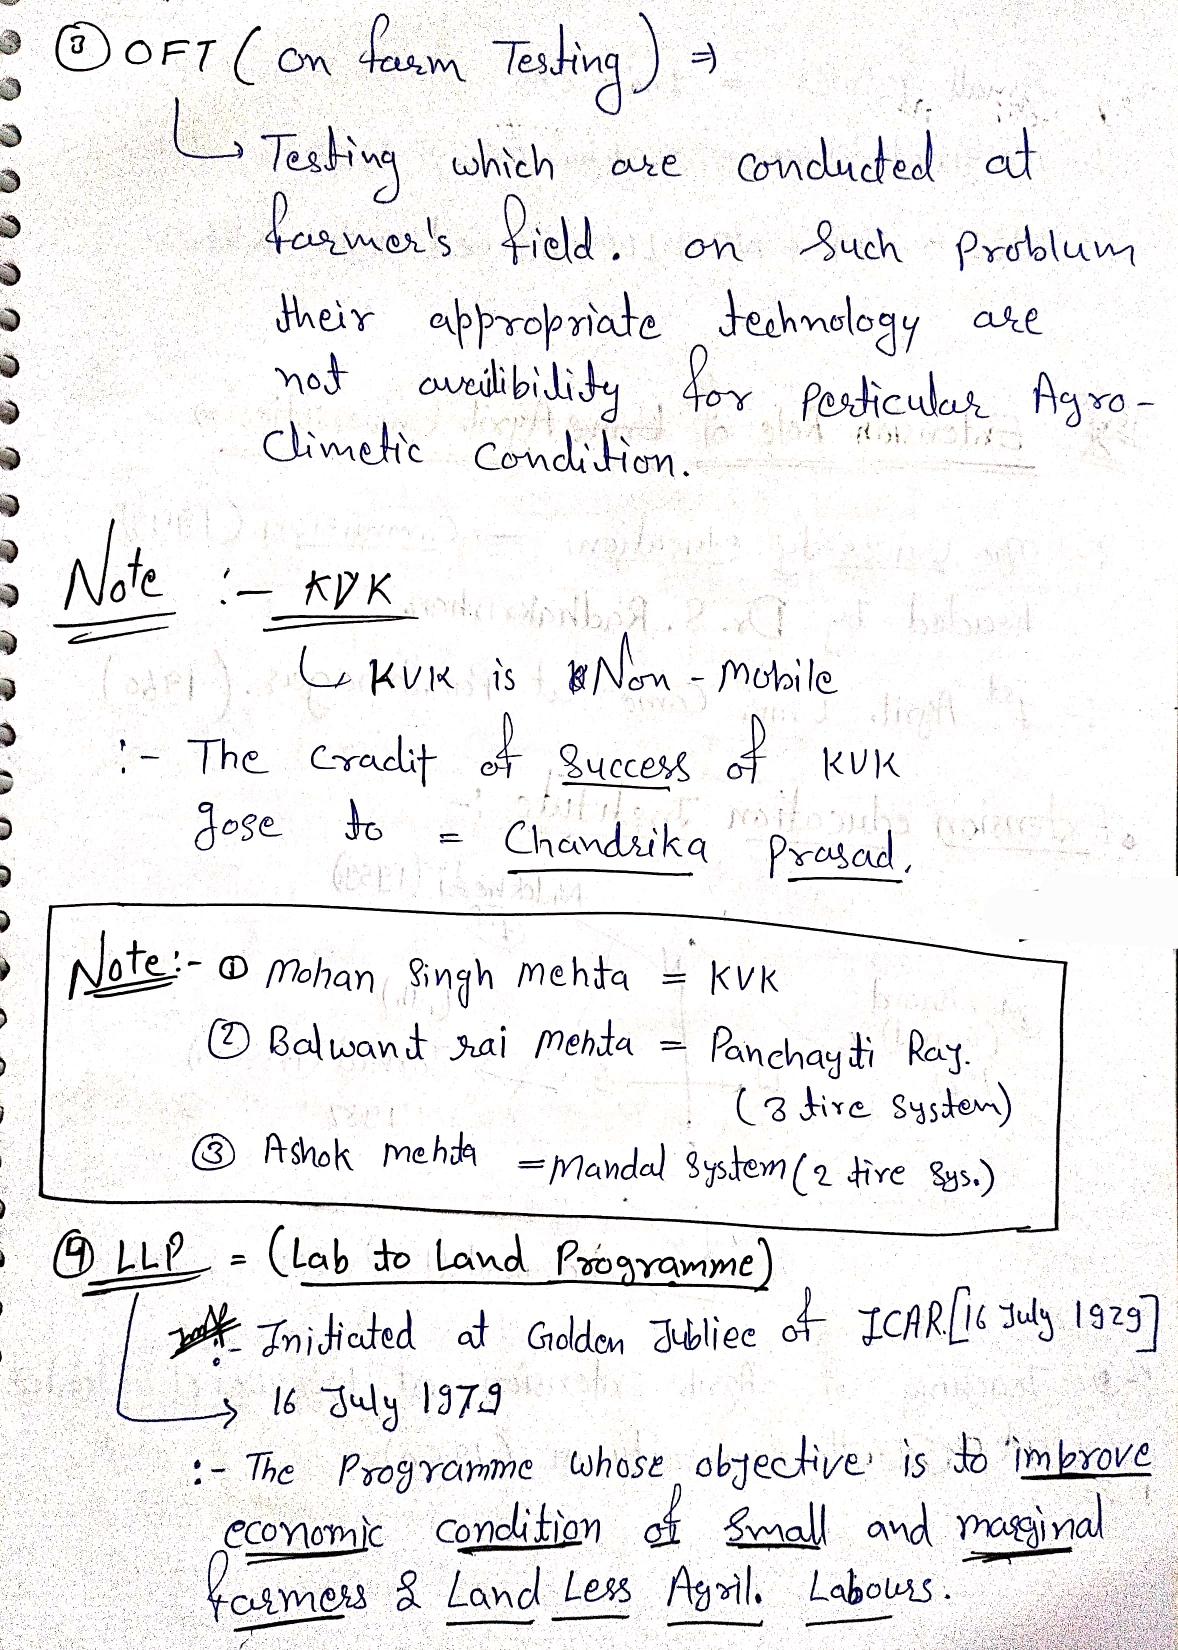 ③ OFT ( on farm Testing ) ⇒
↳ Testing which are conducted at
farmer's field. on such problum
their appropriate technology are
not availibility for perticular Agro-
Climetic Condition.
Note :- KVK
↳ KVK is Non - Mobile
:- The cradit of success of KVK
gose to = Chandrika Prasad.
Note:- ① Mohan Singh mehta = KVK
② Balwant rai mehta = Panchayti Raj.
(3 tire system)
③ Ashok mehta = Mandal System (2 tire sys.)
④ LLP = (Lab to Land Programme)
:- Initiated at Golden Jubliee of ICAR. [16 July 1929]
→ 16 July 1979
:- The Programme whose objective is to improve
economic condition of small and marginal
farmers & Land Less Agril. Labours.